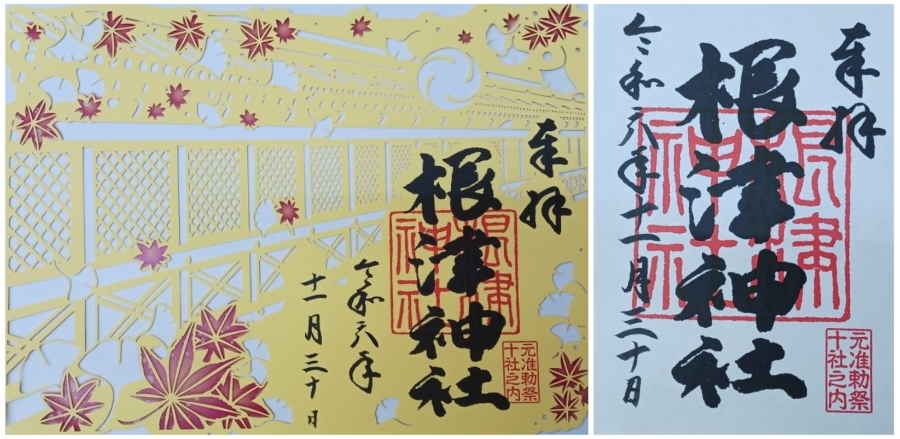 奉拝
根津神社
根津
神社
元准勅祭
十社之内
令和六年
十一月三十日
奉拝
根津神社
根津
神社
元准勅祭
十社之内
令和六年十一月三十日